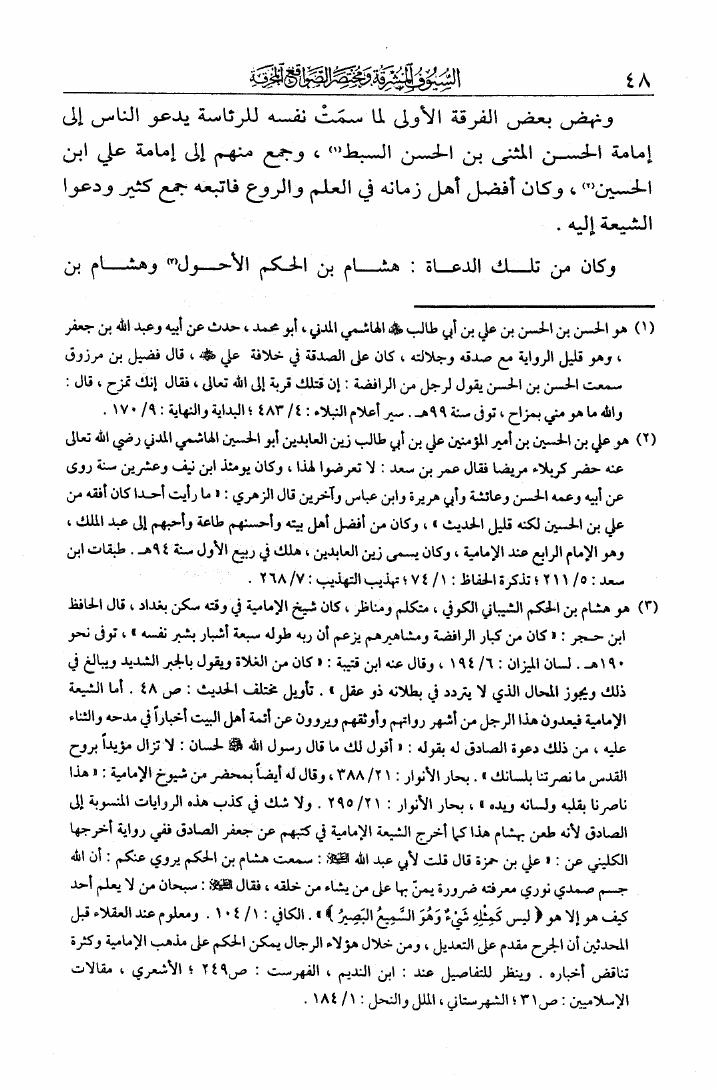 ٤٨ السيوف المشرقة ومختصر الصواقع المحرقة
ونهض بعض الفرقة الأولى لما سمَتْ نفسه للرئاسة يدعو الناس إلى
إمامة الحسـن المثنى بن الحسن السبط(١) ، وجمع منهم إلى إمامة علي ابن
الحسين(٢) ، وكان أفضل أهل زمانه في العلم والروع فاتبعه جمع كثير ودعوا
الشيعة إليه .
وكان من تلـك الدعـاة : هشـام بن الحكم الأحـول(٣) وهشـام بن
(١) هو الحسن بن الحسن بن علي بن أبي طالب ﷺ الهاشمي المدني ، أبو محمد ، حدث عن أبيه وعبد الله بن جعفر
، وهو قليل الرواية مع صدقه وجلالته ، كان على الصدقة في خلافة علي ﷺ ، قال فضيل بن مرزوق
سمعت الحسن بن الحسن يقول لرجل من الرافضة : إن قتلك قربة إلى الله تعالى ، فقال إنك تمزح ، قال :
والله ما هو مني بمزاح ، توفى سنة ٩٩هـ . سير أعلام النبلاء : ٤/ ٤٨٣ ؛ البداية والنهاية : ٩/ ١٧٠ .
(٢) هو علي بن الحسين بن أمير المؤمنين علي بن أبي طالب زين العابدين أبو الحسين الهاشمي المدني رضي الله تعالى
عنه حضر كربلاء مريضا فقال عمر بن سعد : لا تعرضوا لهذا ، وكان يومئذ ابن نيف وعشرين سنة روى
عن أبيه وعمه الحسن وعائشة وأبي هريرة وابن عباس وآخرين قال الزهري : « ما رأيت أحدا كان أفقه من
علي بن الحسين لكنه قليل الحديث » ، وكان من أفضل أهل بيته وأحسنهم طاعة وأحبهم إلى عبد الملك ،
وهو الإمام الرابع عند الإمامية ، وكان يسمى زين العابدين ، هلك في ربيع الأول سنة ٩٤هـ . طبقات ابن
سعد : ٥/ ٢١١ ؛ تذكرة الحفاظ : ١/ ٧٤ ؛ تهذيب التهذيب : ٧/ ٢٦٨ .
(٣) هو هشام بن الحكم الشيباني الكوفي ، متكلم ومناظر ، كان شيخ الإمامية في وقته سكن بغداد ، قال الحافظ
ابن حـجر : « كان من كبار الرافضة ومشاهيرهم يزعم أن ربه طوله سبعة أشبار بشبر نفسه » ، توفى نحو
١٩٠هـ . لسان الميزان : ٦/ ١٩٤ ، وقال عنه ابن قتيبة : « كان من الغلاة ويقول بالجبر الشديد ويبالغ في
ذلك ويجوز المحال الذي لا يتردد في بطلانه ذو عقل » . تأويل مختلف الحديث : ص ٤٨ . أما الشيعة
الإمامية فيعدون هذا الرجل من أشهر رواتهم وأوثقهم ويروون عن أئمة أهل البيت أخباراً في مدحه والثناء
عليه ، من ذلك دعوة الصادق له بقوله : « أقول لك ما قال رسول الله ﷺ لحسان : لا تزال مؤيداً بروح
القدس ما نصرتنا بلسانك » . بحار الأنوار : ٢١/ ٣٨٨ ، وقال له أيضاً بمحضر من شيوخ الإمامية : « هذا
ناصرنا بقلبه ولسانه ويده » ، بحار الأنوار : ٢١/ ٢٩٥ . ولا شك في كذب هذه الروايات المنسوبة إلى
الصادق لأنه طعن بهشام هذا كما أخرج الشيعة الإمامية في كتبهم عن جعفر الصادق ففي رواية أخرجها
الكليني عن : « علي بن حمزة قال قلت لأبي عبد الله : سمعت هشام بن الحكم يروي عنكم : أن الله
جسم صمدي نوري معرفته ضرورة يمنّ بها على من يشاء من خلقه ، فقال : سبحان من لا يعلم أحد
كيف هو إلا هو ﴿ ليس كَمِثْلِهِ شَيْءٌ وَهُوَ السَّمِيعُ البَصِيرُ ﴾ » . الكافي : ١/ ١٠٤ . ومعلوم عند العقلاء قبل
المحدثين أن الجرح مقدم على التعديل ، ومن خلال هؤلاء الرجال يمكن الحكم على مذهب الإمامية وكثرة
تناقض أخباره . وينظر للتفاصيل عند : ابن النديم ، الفهرست : ص٢٤٩ ؛ الأشعري ، مقالات
الإسلاميين : ص٣١ ؛ الشهرستاني ، الملل والنحل : ١/ ١٨٤ .